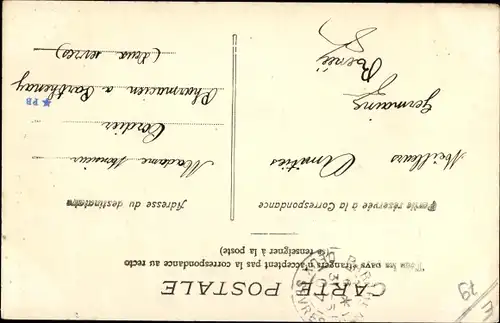 CARTE POSTALE
Tous les pays étrangers n'acceptent pas la correspondance au recto
(se renseigner à la poste)
Partie réservée à la Correspondance
Adresse du destinataire
Meilleurs Amitiés
Germaine
René
Madame Monsieur
Cordier
Pharmacien a Parthenay
(deux sevres)
PB
79
E